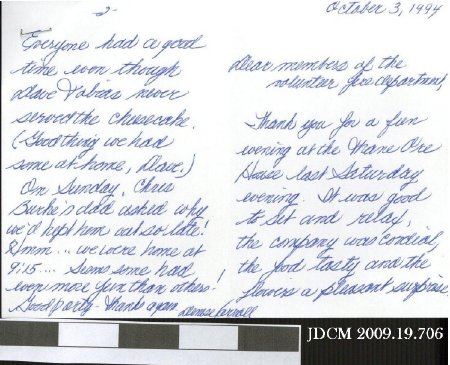 October 3, 1994
Dear members of the
volunteer fire department,
Thank you for a fun
evening at the Kane Ore
House last Saturday
evening. It was good
to sit and relax,
the company was cordial,
the food tasty and the
flowers a pleasant surprise.
-2-
Everyone had a good
time even though
Dave Tobias never
served the cheesecake.
(Good thing we had
some at home, Dave.)
On Sunday, Chris
Burke's dad asked why
we'd kept him out so late!
Hmm... we were home at
9:15... Seems some had
even more fun than others!
Good party - Thanks again
Denise
JDCM 2009.19.706